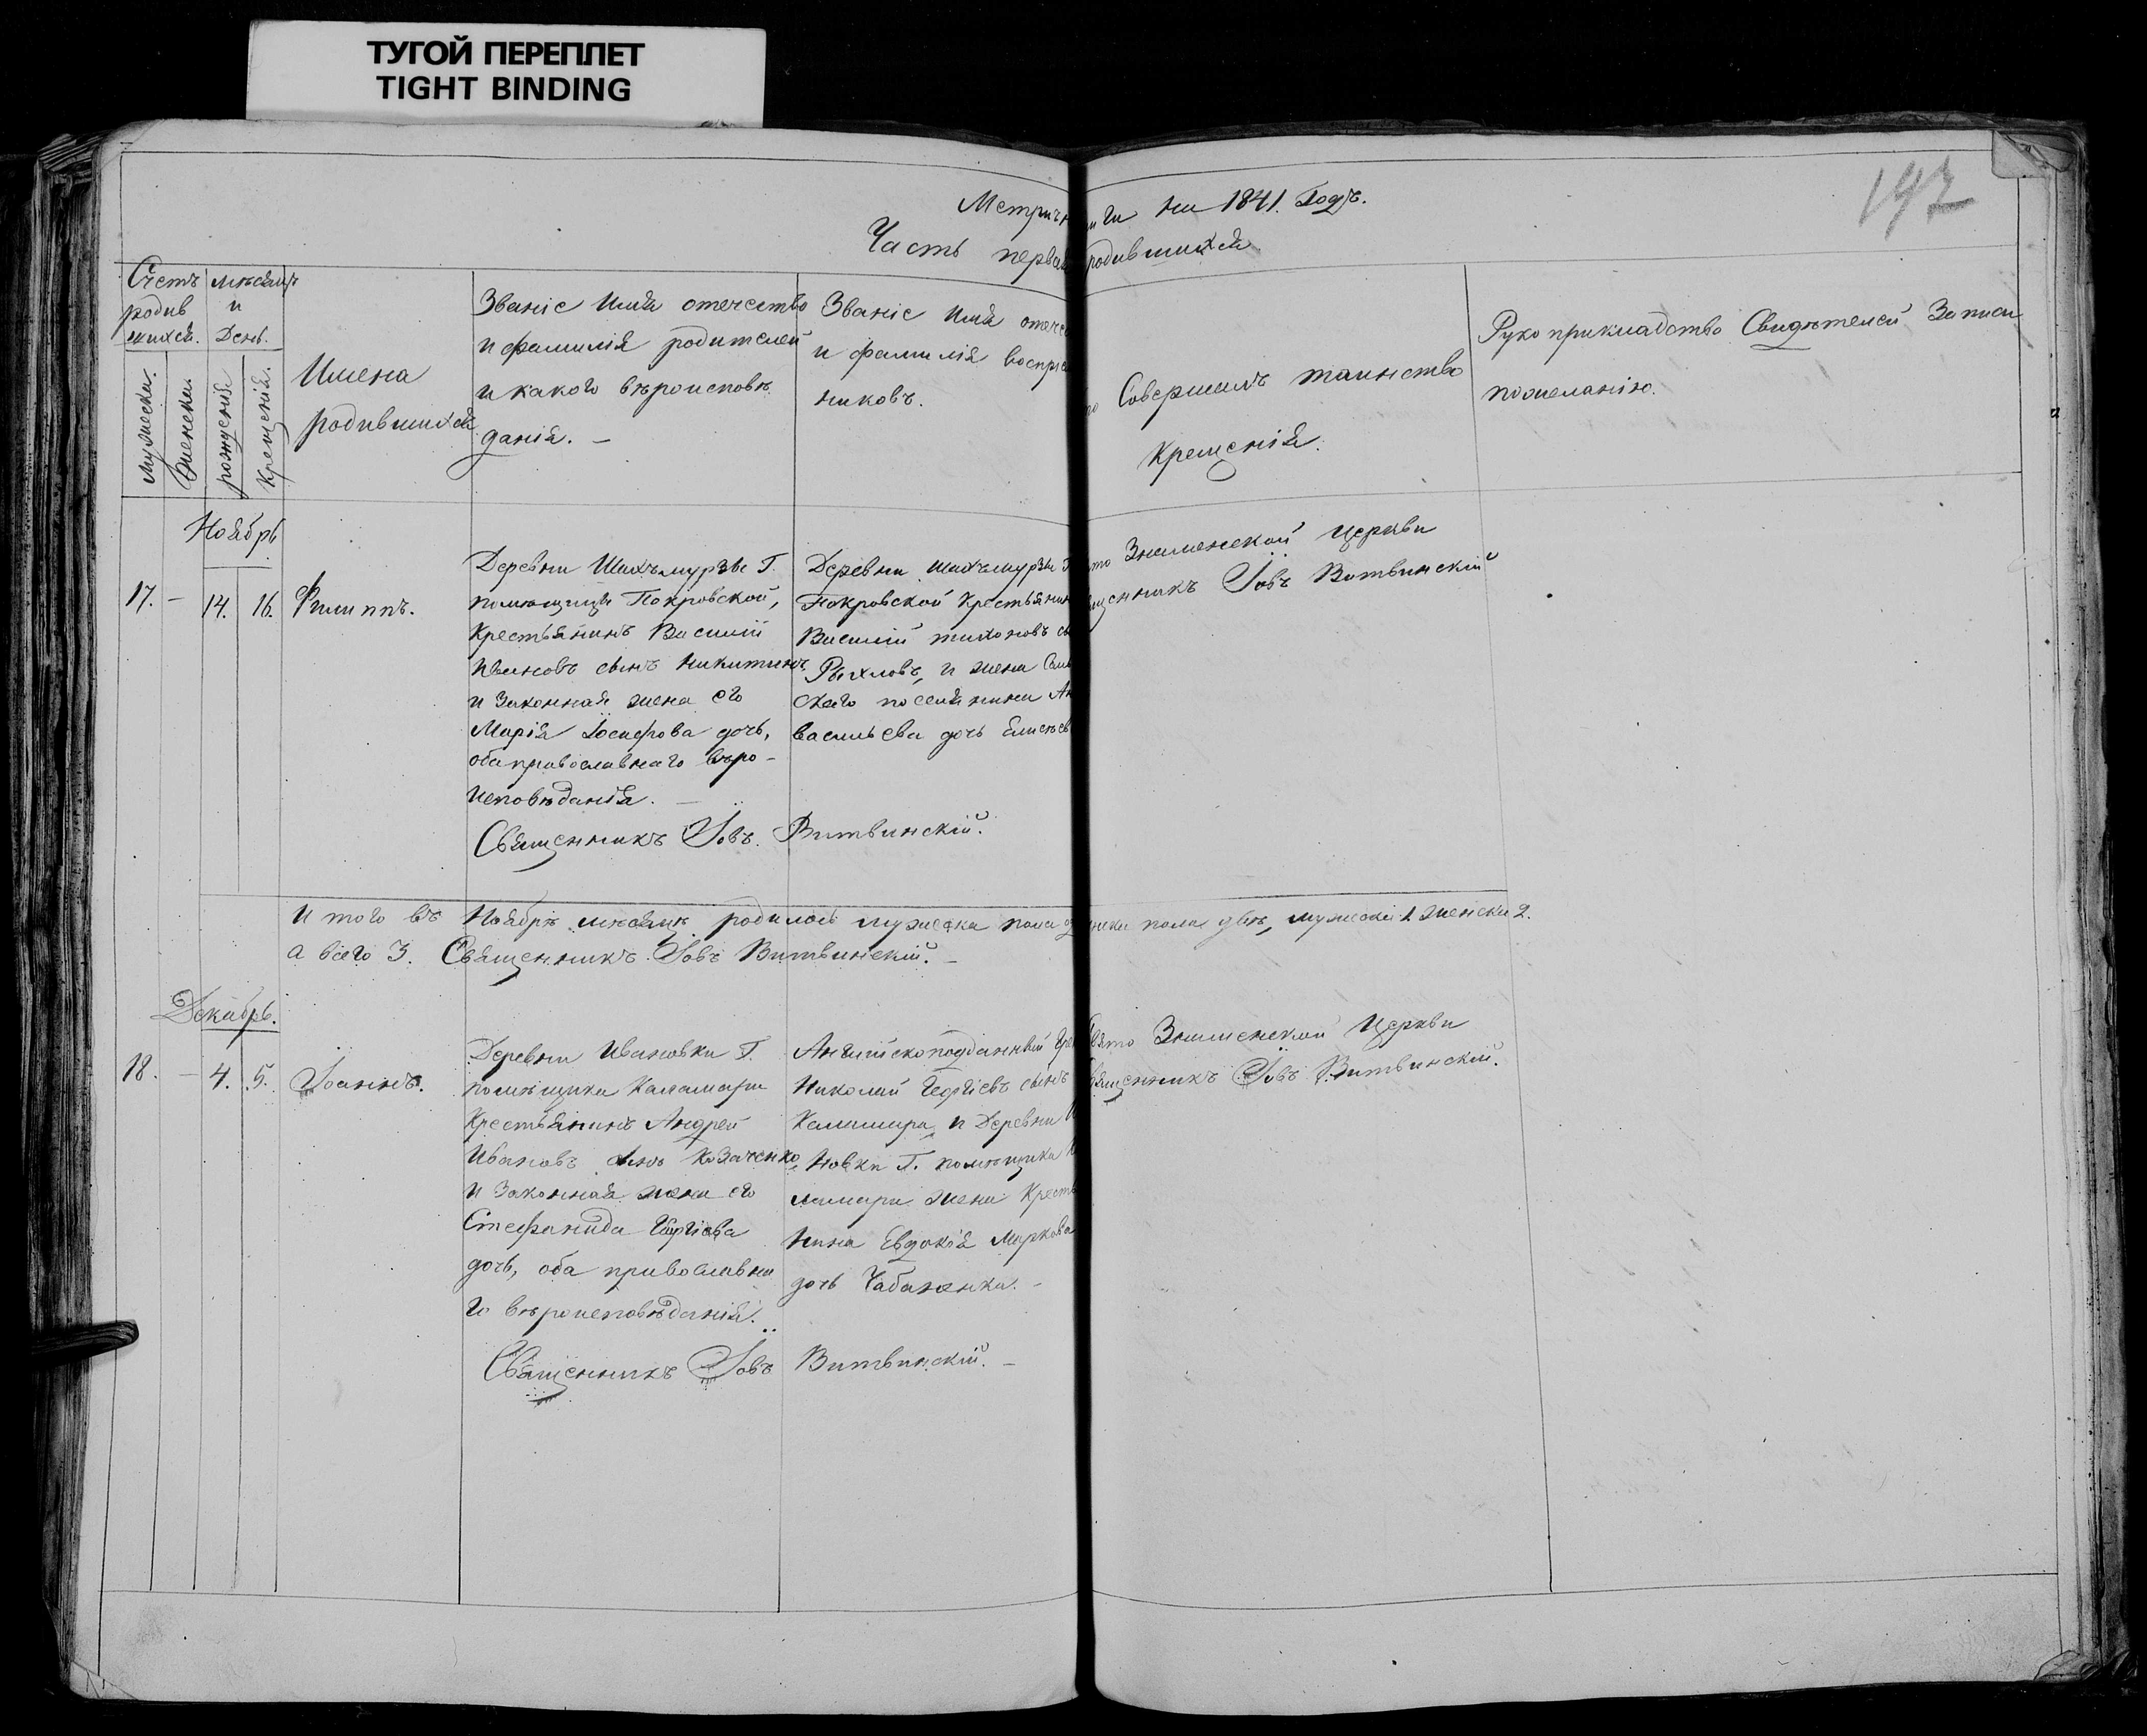 ТУГОЙ ПЕРЕПЛЕТ
TIGHT BINDING
197
Метричн ниги на 1841. Годъ.
Часть первая родившихся
Счетъ родив шихся.
мѣсяцъ и День.
Мужеска.
Женска.
рожденія
Крещенія.
Имена
родившихся
Званіе Имя отечество
и фамилія родителей
и какого вѣроисповѣ
данія. —
Званіе Имя отече
и фамилія воспрі
никовъ.
Совершалъ таинство
Крещенія.
Рукоприкладство Свидѣтелей Записи
по желанію.
Ноябрь
17. — 14. 16. Филиппъ.
Деревни Шихъмурзы Г.
помѣщицы Покровской,
Крестьянинъ Василій
Ивановъ сынъ Никитинъ
и Законная жена его
Марія Іосифова дочь,
оба православнаго вѣро-
исповѣданія. —
Священникъ Іовъ Витвинскій.
Деревни Шихъмурзы Г
Покровской Крестьянин
Василій тихоновъ с
Рыхловъ, и жена
скаго поселянина
васильева дочь Елисѣев
то Знаменской Церкви
щенникъ Іовъ Витвинскій
И того въ Ноябрѣ мѣсяцѣ родилось мужеска пола нска пола двѣ, мужескъ 1 женскъ 2.
а всего 3. Священникъ Іовъ Витвинскій. —
Декабрь.
18. — 4. 5. Іоаннъ.
Деревни Ивановки Г.
помѣщика Каламари
Крестьянинъ Андрей
Ивановъ сынъ Козаченко
и Законная жена его
Стефанида Георгіева
дочь, оба православна
го вѣроисповѣданія.
Священникъ Іовъ Витвинскій. —
Англійскоподданный Гре
Николай Георгіевъ сынъ
Каламара, и Деревни И
новки Г. помѣщика К
ламари жена Крестья
нина Евдокія Маркова
дочь Чабаненка. —
вято Знаменской Церкви
вященникъ Іовъ Витвинскій.